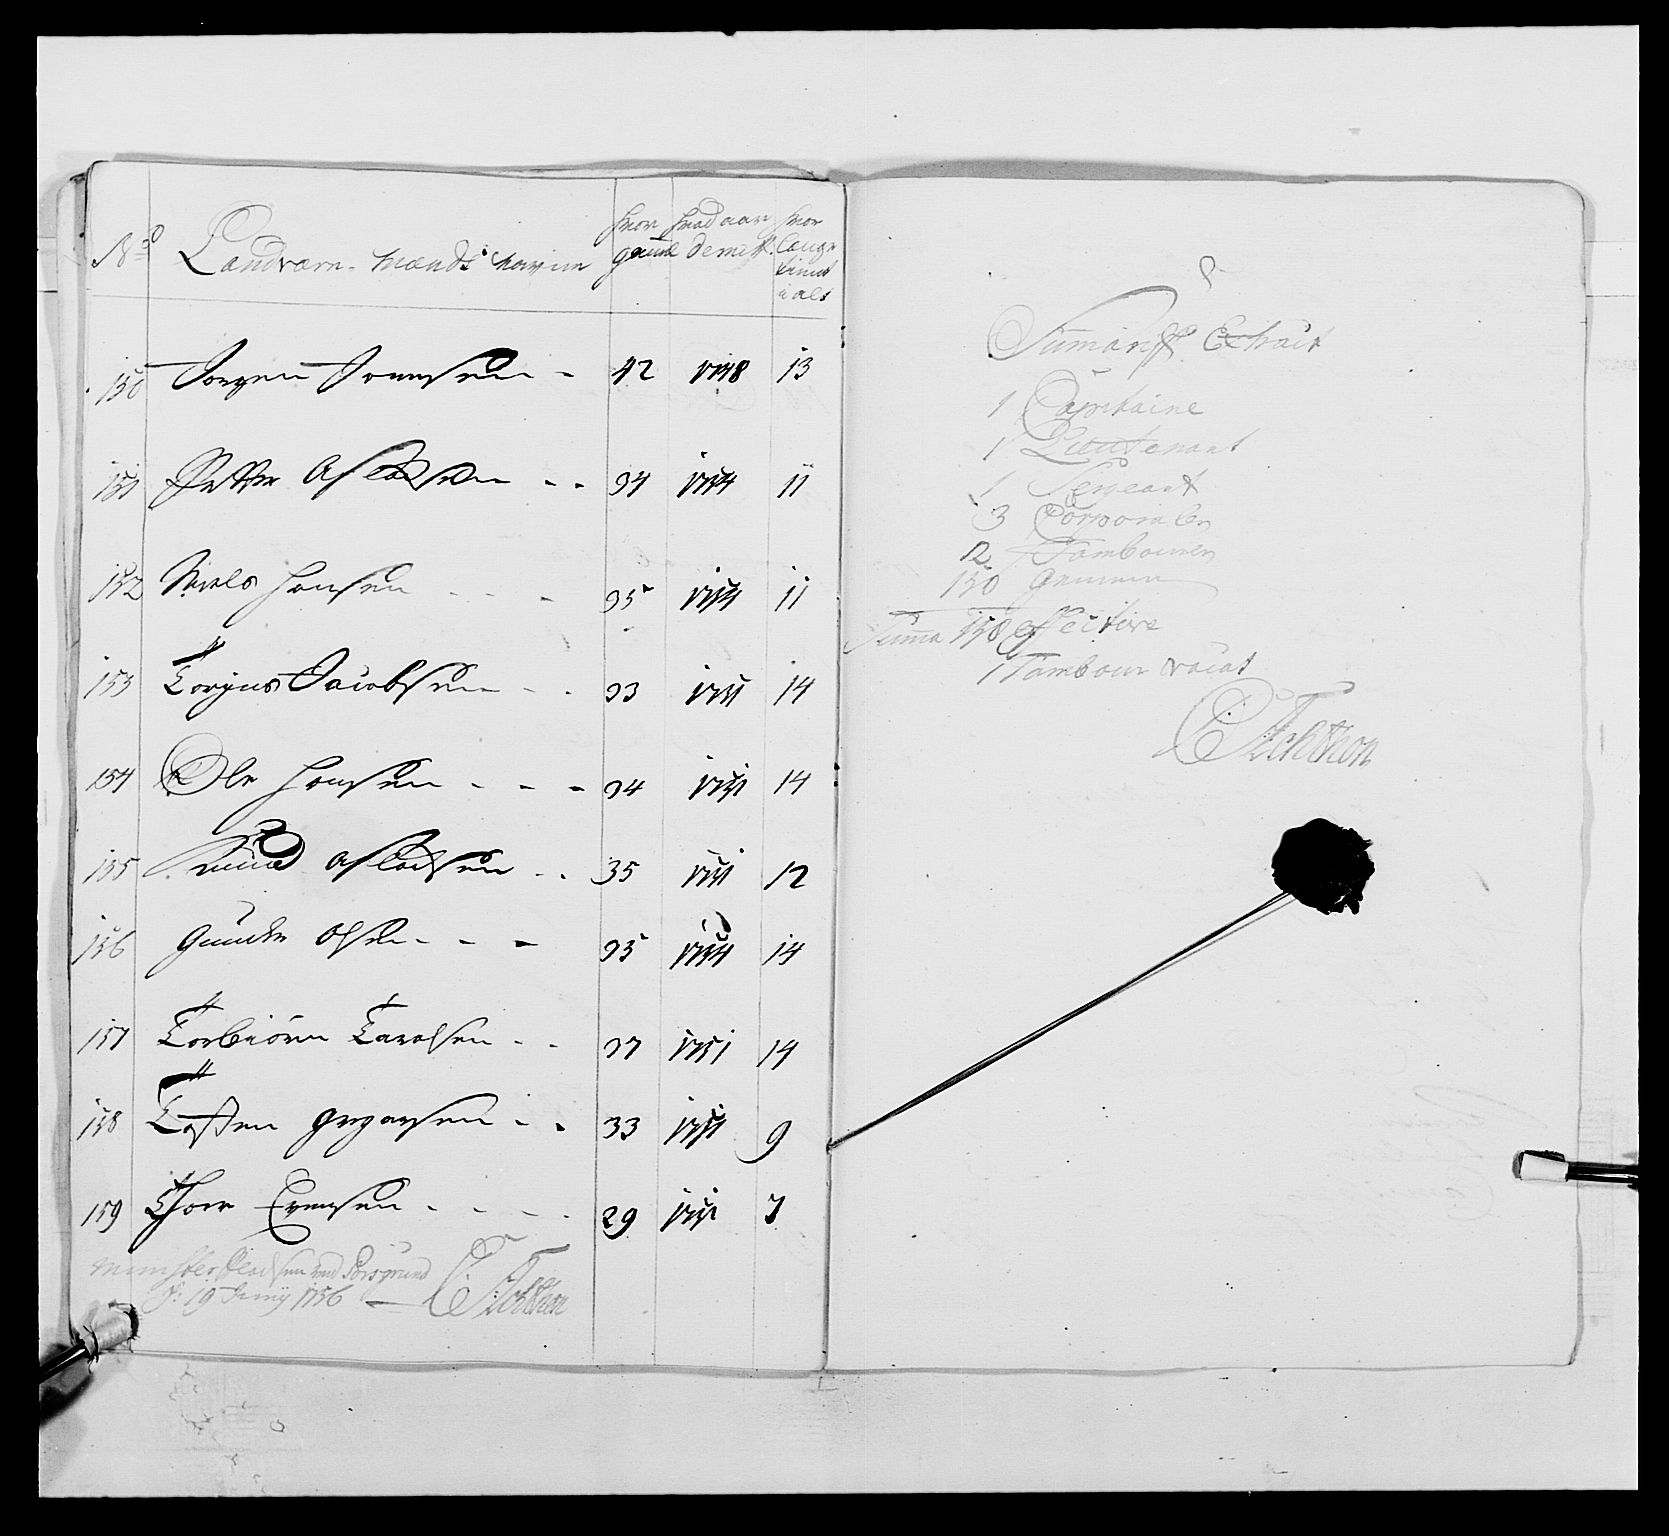 No Landværn-Mænds Navne hvor gaml hvad aar demitt: hvor lenge tient i alt
150 Jørgen Svensen - 42 1748 13
151 Petter Aslaksen - - 34 1754 11
152 Niels Hansen - - - 35 1754 11
153 Torgus Jacobsen - - 33 1751 14
154 Ole Hansen - - - 34 1751 14
155 Knud Aslacksen - - 35 1751 12
156 Gunder Olsen - - - 35 1754 14
157 Torbiörn Tarolsen - - 37 1751 14
158 Tosten gregarsen - - 33 1751 9
159 Thor Evensen - - - - 29 1751 7
Münster Pladsen ved Porsgrund
d: 19 Junij 1756 — Achthon
Sumarisk Extract
1 Capitaine
1 Lieutenant
1 Sergeant
3 Corporaler
2 Tambourer
150 gemeene
Summa 158 effective
1 Tambour vacat
Achthon